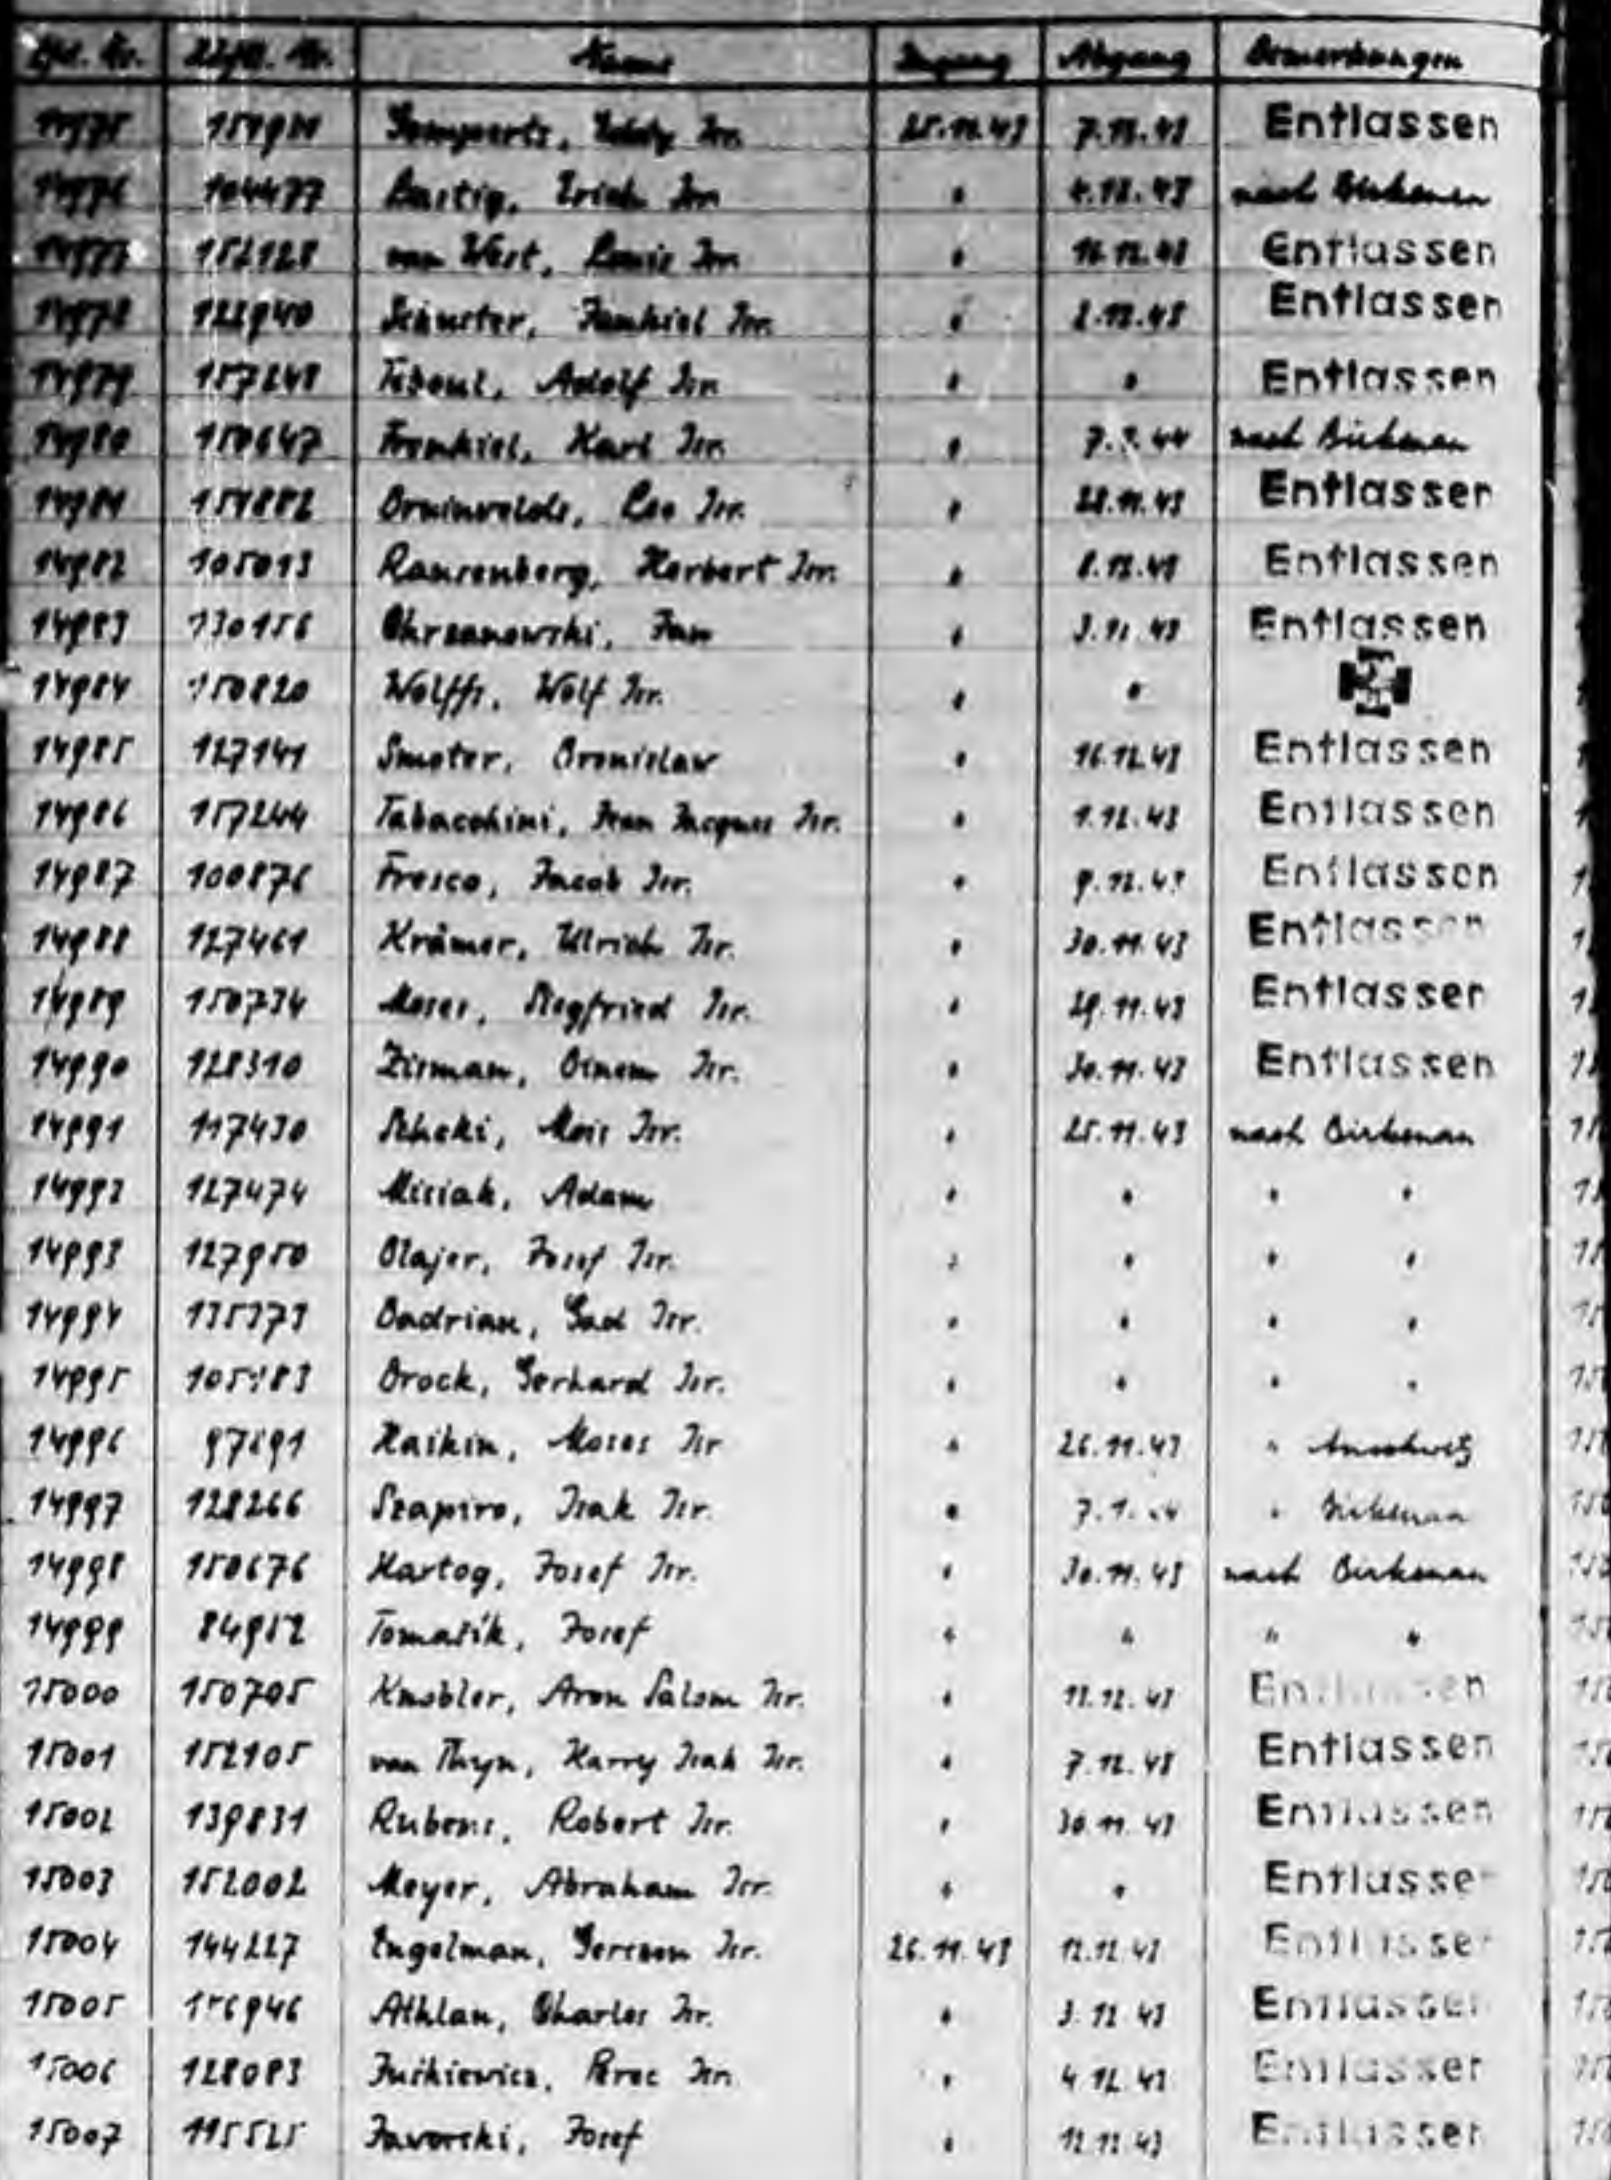 Lfd. Nr. Häftl. Nr. Name Zugang Abgang Bemerkungen
14975 Gompertz, Isr. 25.11.43 7.12.43 Entlassen
14976 104477 Bartig, Erich Isr. " 4.12.43 nach Birkenau
14977 152128 van West, Louis Isr. " 16.12.43 Entlassen
14978 122940 Schuster, Jankiel Isr. " 2.12.43 Entlassen
14979 157248 Adolf Isr. " " Entlassen
14980 150647 Frenkiel, Karl Isr. " nach Birkenau
14981 Leo Isr. " 28.11.43 Entlassen
14982 105013 Herbert Isr. " 8.12.43 Entlassen
14983 130156 Chrzanowski, Jan " Entlassen
14984 150820 Wolffs, Wolf Isr. " "
14985 127141 Smoter, Bronislaw " 16.12.43 Entlassen
14986 157244 Tabacchini, Jean Jacques Isr. " 1.12.43 Entlassen
14987 100876 Fresco, Jacob Isr. " 9.12.43 Entlassen
14988 127461 Krämer, Ulrich Isr. " 30.11.43 Entlassen
14989 150734 Moses, Siegfried Isr. " 29.11.43 Entlassen
14990 128310 Isr. " 30.11.43 Entlassen
14991 117430 Isr. " 25.11.43 nach Birkenau
14992 127474 Misiak, Adam " " " "
14993 127950 Josef Isr. " " " "
14994 135373 Badrian, Gad Isr. " " " "
14995 Brock, Gerhard Isr. " " " "
14996 97691 Haikin, Moses Isr. " 26.11.43 " Auschwitz
14997 128266 Szapiro, Isak Isr. " 7.1.44 " Birkenau
14998 150676 Hartog, Josef Isr. " 30.11.43 nach Birkenau
14999 84952 Tomasik, Josef " " " "
15000 150705 Knobler, Aron Salom Isr. " 12.43 Entlassen
15001 152105 van Thyn, Harry Isak Isr. " 7.12.43 Entlassen
15002 139831 Rubens, Robert Isr. " 30.11.43 Entlassen
15003 152002 Meyer, Abraham Isr. " " Entlassen
15004 144227 Engelman, Isr. 26.11.43 12.12.43 Entlassen
15005 Athlan, Charles Isr. " 3.12.43 Entlassen
15006 128083 Isr. " 4.12.43 Entlassen
15007 115525 Jaworski, Josef " 12.12.43 Entlassen